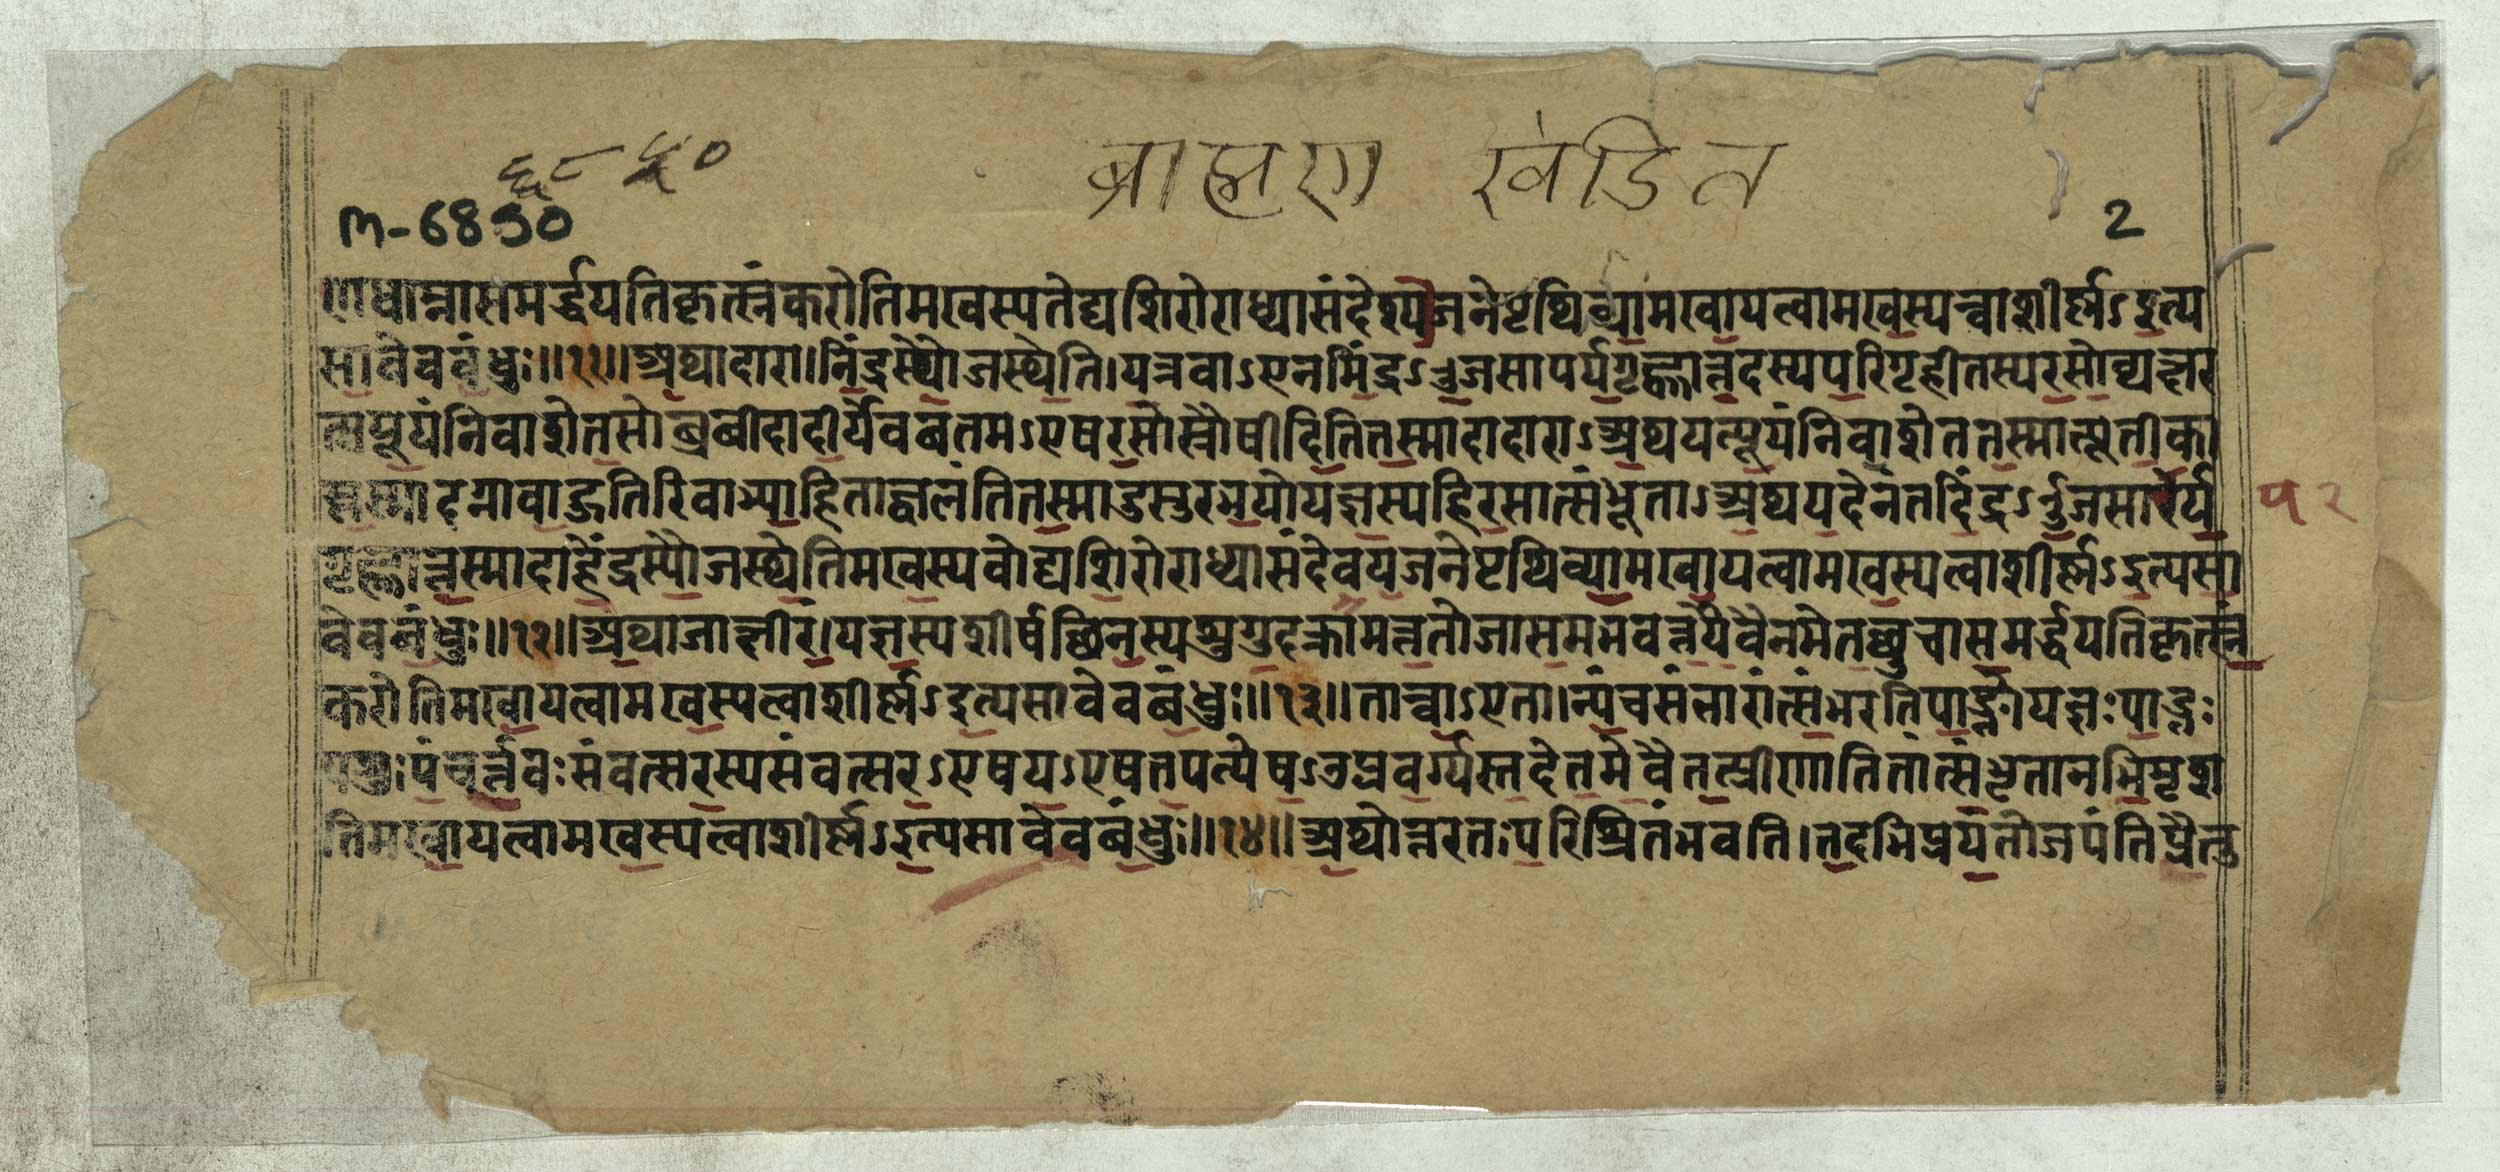 ६८५०
ब्राह्मण खंडित
m-6850
2
णधाम्नासमर्द्धयतिकृत्स्नंकरोतिमखस्यतेद्यशिरोराध्यासंदेवयजनेपृथिव्यामखायत्वामखस्यत्वाशीर्ष्णऽइत्य
सावेवबंधुः॥११॥अथादारा।निंद्रस्यौजस्थेति।यत्रवाऽएनमिंद्रऽओजसापर्यगृह्णात्तदस्यपरिगृहीतस्यरसोव्यक्षर
त्सपूयंनिवाशेतसोब्रवीदादीर्येवबतमऽएषरसोस्तौषीदितितस्मादादाराऽअथयत्पूयंनिवाशेततस्मात्पूतीका
स्तस्मादग्नावाहुतिरिवाभ्याहिताज्वलंतितस्मादुसुरभयोयज्ञस्यहिरसात्संभूताऽअथयदेनंतदिंद्रऽओजसापर्य
प२
गृह्णात्तस्मादाहेंद्रस्यौजस्थेतिमखस्यवोद्यशिरोराध्यासंदेवयजनेपृथिव्यामखायत्वामखस्यत्वाशीर्ष्णऽइत्यसा
वेवबंधुः॥१२॥अथाजाक्षीरं।यज्ञस्यशीर्षछिन्नस्यशुगुदक्रामत्ततोजासमभवत्तयैवैनमेतछुचासमर्द्धयतिकृत्स्नं
करोतिमखायत्वामखस्यत्वाशीर्ष्णऽइत्यसावेवबंधुः॥१३॥तान्वाऽएता।न्पंचसंभारांत्संभरतिपाङ्क्तोयज्ञःपाङ्क्तः
पशुःपंचर्त्तवःसंवत्सरस्यसंवत्सरऽएषयऽएषतपत्येषऽउप्रवर्ग्यस्तदेतमेवैतत्प्रीणातितांत्संभृतानभिमृश
तिमखायत्वामखस्यत्वाशीर्ष्णऽइत्यसावेवबंधुः॥१४॥अथोत्तरतःपरिश्रितंभवति।तदभिप्रयंतोजपंतिप्रैतु